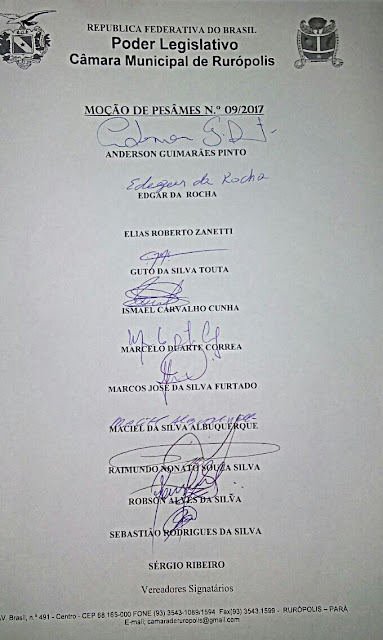 REPUBLICA FEDERATIVA DO BRASIL
Poder Legislativo
Câmara Municipal de Rurópolis
MOÇÃO DE PESÂMES N.º 09/2017
ANDERSON GUIMARÃES PINTO
Edegar da Rocha
EDGAR DA ROCHA
ELIAS ROBERTO ZANETTI
GUTO DA SILVA TOUTA
ISMAEL CARVALHO CUNHA
MARCELO DUARTE CORREA
MARCOS JOSÉ DA SILVA FURTADO
MACIEL DA SILVA ALBUQUERQUE
RAIMUNDO NONATO SOUZA SILVA
ROBSON ALVES DA SILVA
SEBASTIÃO RODRIGUES DA SILVA
SÉRGIO RIBEIRO
Vereadores Signatários
AV. Brasil, n.º 491 - Centro - CEP 68.165-000 FONE (93) 3543-1089/1594 Fax(93) 3543.1599 - RURÓPOLIS – PARÁ
E-mail; camaraderuropolis@gmail.com